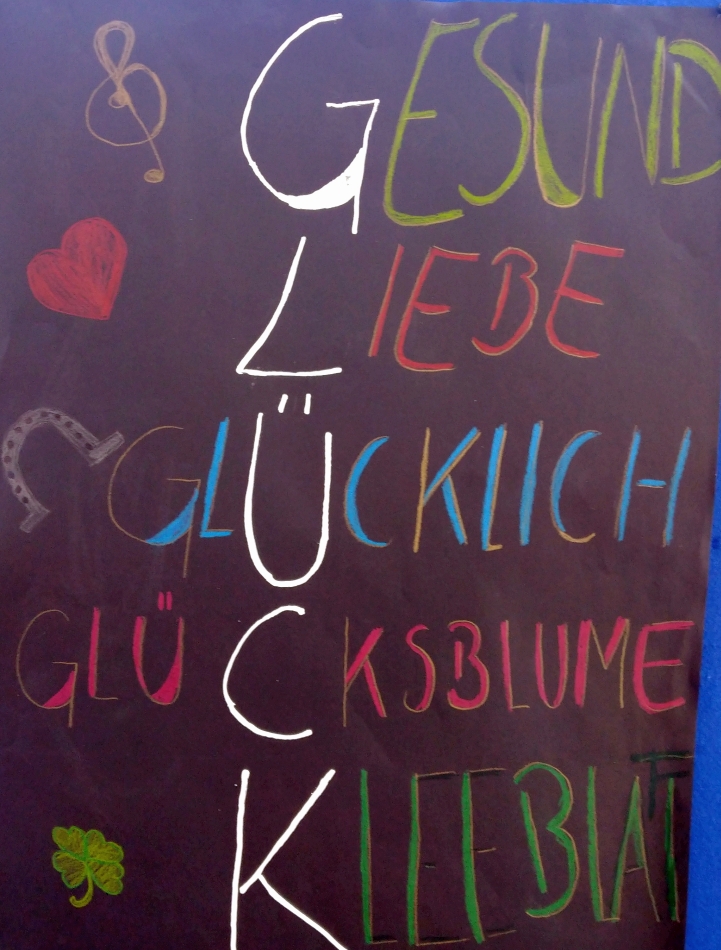 GESUND
LIEBE
GLÜCKLICH
GLÜCKSBLUME
KLEEBLATT